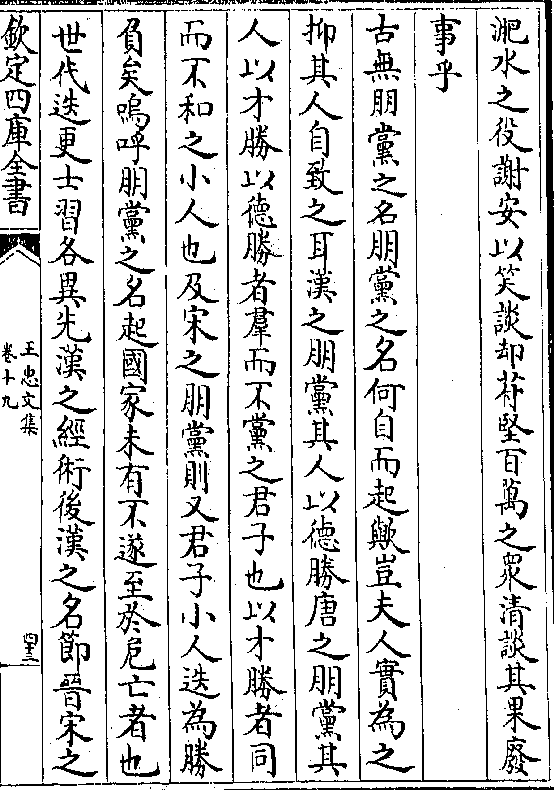 淝水之役謝安以笑談却苻堅百萬之衆清談其果廢
事乎
古無朋黨之名朋黨之名何自而起歟豈夫人實為之
抑其人自致之耳漢之朋黨其人以德勝唐之朋黨其
人以才勝以德勝者羣而不黨之君子也以才勝者同
而不和之小人也及宋之朋黨則又君子小人迭為勝
負矣嗚呼朋黨之名起國家未有不遂至於危亡者也
世代迭更士習各異先漢之經術後漢之名節晉宋之
欽定四庫全書
王忠文集
卷十九
四十三